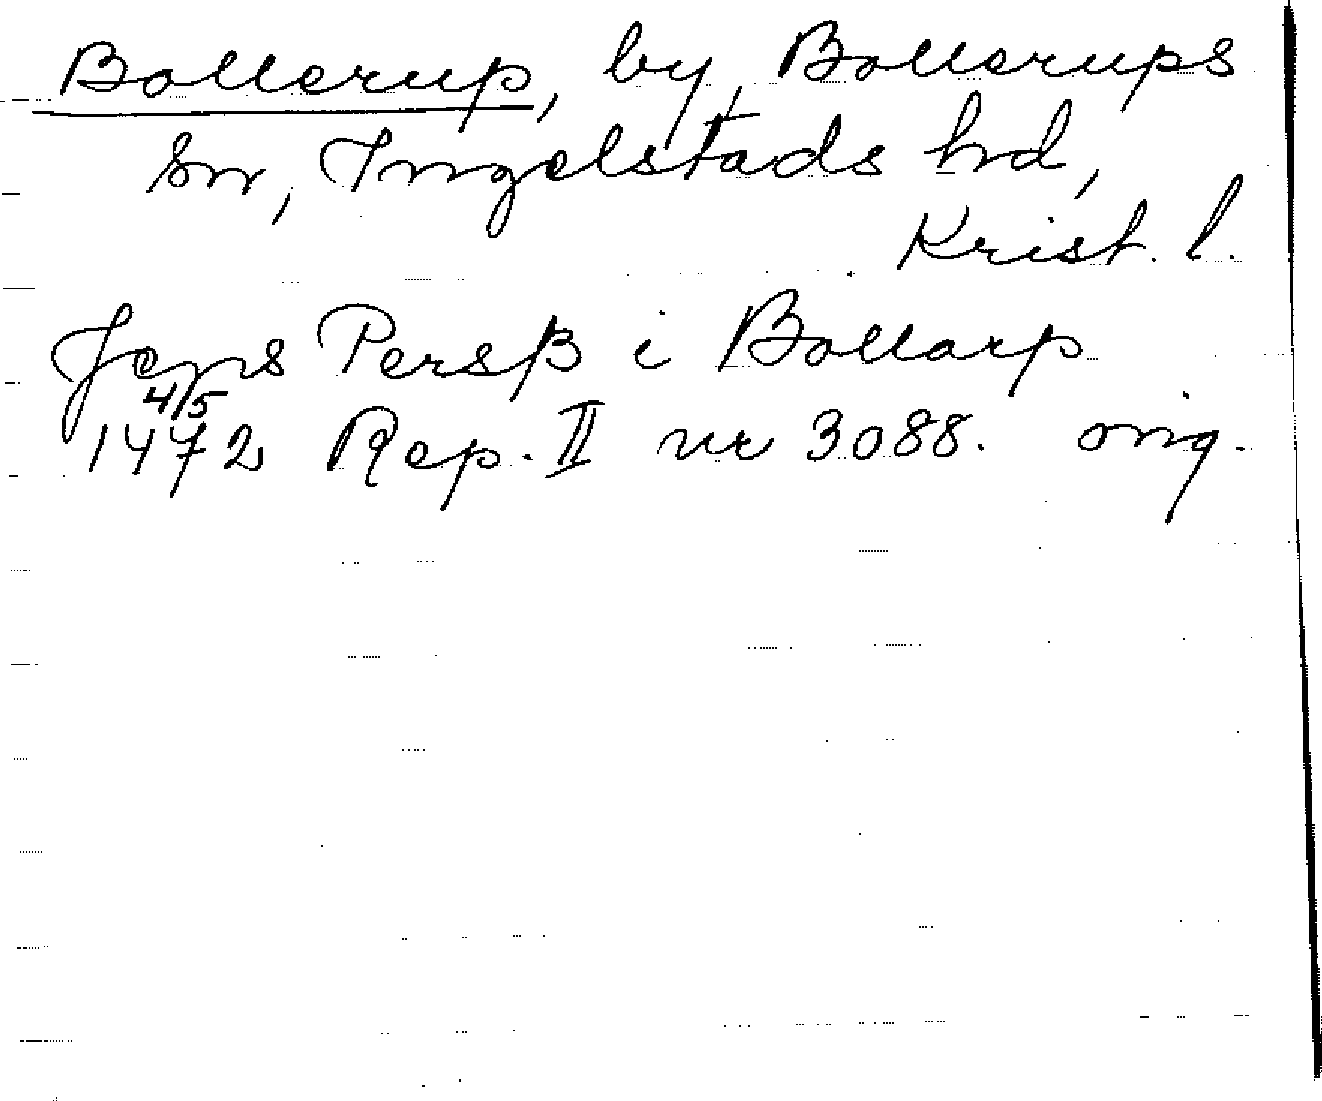 Bollerup, by, Bollerups
sn, Ingelstads hd,
Krist. l.
Jeps Persß i Bollarp
4/5
1472 Rep. II nr 3088. orig.